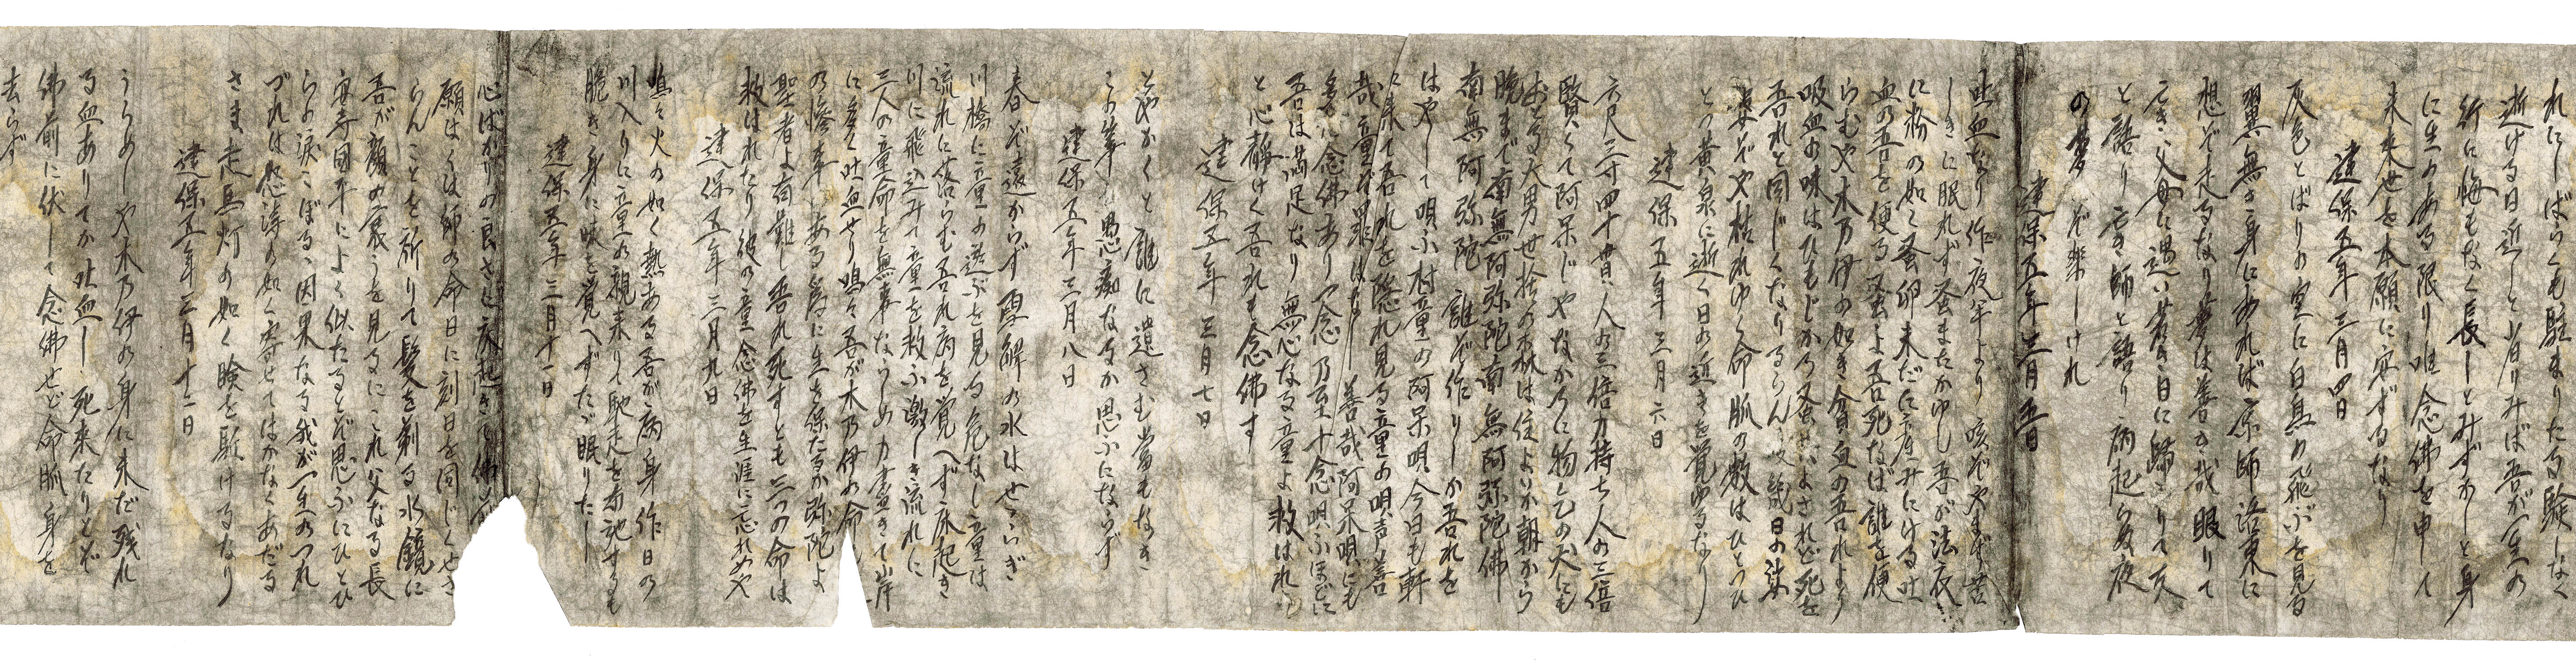 れにしばらくも駐まりたる験しなく
逝ける日近しと省りみば吾が一生の
行に悔もなく長しとみずかしと身
に生のある限り唯念佛を申して
未来世を本願に安ずるなり
建保五年三月四日
灰色とばりの空に白鳥の飛ぶを見る
翼無き身にあれば原師洛東に
想ぞ走るなり夢は善き哉眠りて
亡き父母に遇い若き日に歸りて友
と語り亡き師と語り病起らぬ夜
の夢ぞ樂しけれ
建保五年三月五日
吐血なり昨夜半より咳ぞやまず苦
しきに眠れず蚤またかゆし吾が法衣
に粉の如く蚤卵未だに産みにける吐
血の吾を便る蚤よ吾死なば誰を便
らむや木乃伊の如き貧血の吾れより
吸血の味はひもじかろ蚤よされど死を
吾れと同じくなりるらん 幾日の法
衣ぞや枯れゆく命脈の數はひとつひ
とつ黄泉に逝く日の近きを覚ゆるなり
建保五年三月六日
六尺三寸四十貫人の三倍力持ち人の三倍
賢くて阿呆じやなかろに物乞の犬にも
劣る大男世捨の森は住よいか朝から
晩まで南無阿弥陀南無阿弥陀佛
南無阿弥陀 誰ぞ作りしか吾れを
はやして唄ふ村童の阿呆唄今日も軒
に来て吾れを隠れ見る童の唄声善
哉童ぞ罪はなし 善哉阿呆唄にも
念佛あり一念乃至十念唄ふほどに
吾は満足なり無心なる童よ救はれ
と心靜けく吾れも念佛す
建保五年三月七日
とやかくと誰に遺さむ當もなき
この筆 愚痴なるか思ふにならず
建保五年三月八日
春ぞ遠からず雪解の水はせゝらぎ
川橋に童の遊ぶを見る危なし童は
流れに落らむ吾れ病を覚へず床起き
川に飛込みて童を救ふ激しき流れに
三人の童命を無事ならしめ力盡きて岸
に多く吐血せり嗚々吾が木乃伊の命
の惨事 ある為に生を保たるか弥陀よ
聖者よ有難し吾れ死すとも三つの命は
救はれたり彼の童念佛を生涯に忘れめや
建保五年三月九日
嗚々火の如く熱ある吾が病身昨日の
川入りに童の親来りて馳走を布施するも
脆き身に味を覚へずたゞ眠りたし
建保五年三月十一日
心ばかりの良さに床起きて佛
願はくは師の命日に刻日を同じくせさ
らんことを祈りて髪を剃る水鏡に
吾が顔の衰うを見るにこれ父なる長
安寺國平によく似たるとぞ思ふにひとひ
らの涙こぼるゝ因果なる我が一生のつれ
づれは怒涛の如く寄せてはかなくあだる
さま走馬灯の如く瞼を駈けるなり
建保五年三月十二日
うらめしや木乃伊の身に未だ残れ
る血ありてか吐血し死来たりとぞ
佛前に伏して念佛せど命脈身を
去らず